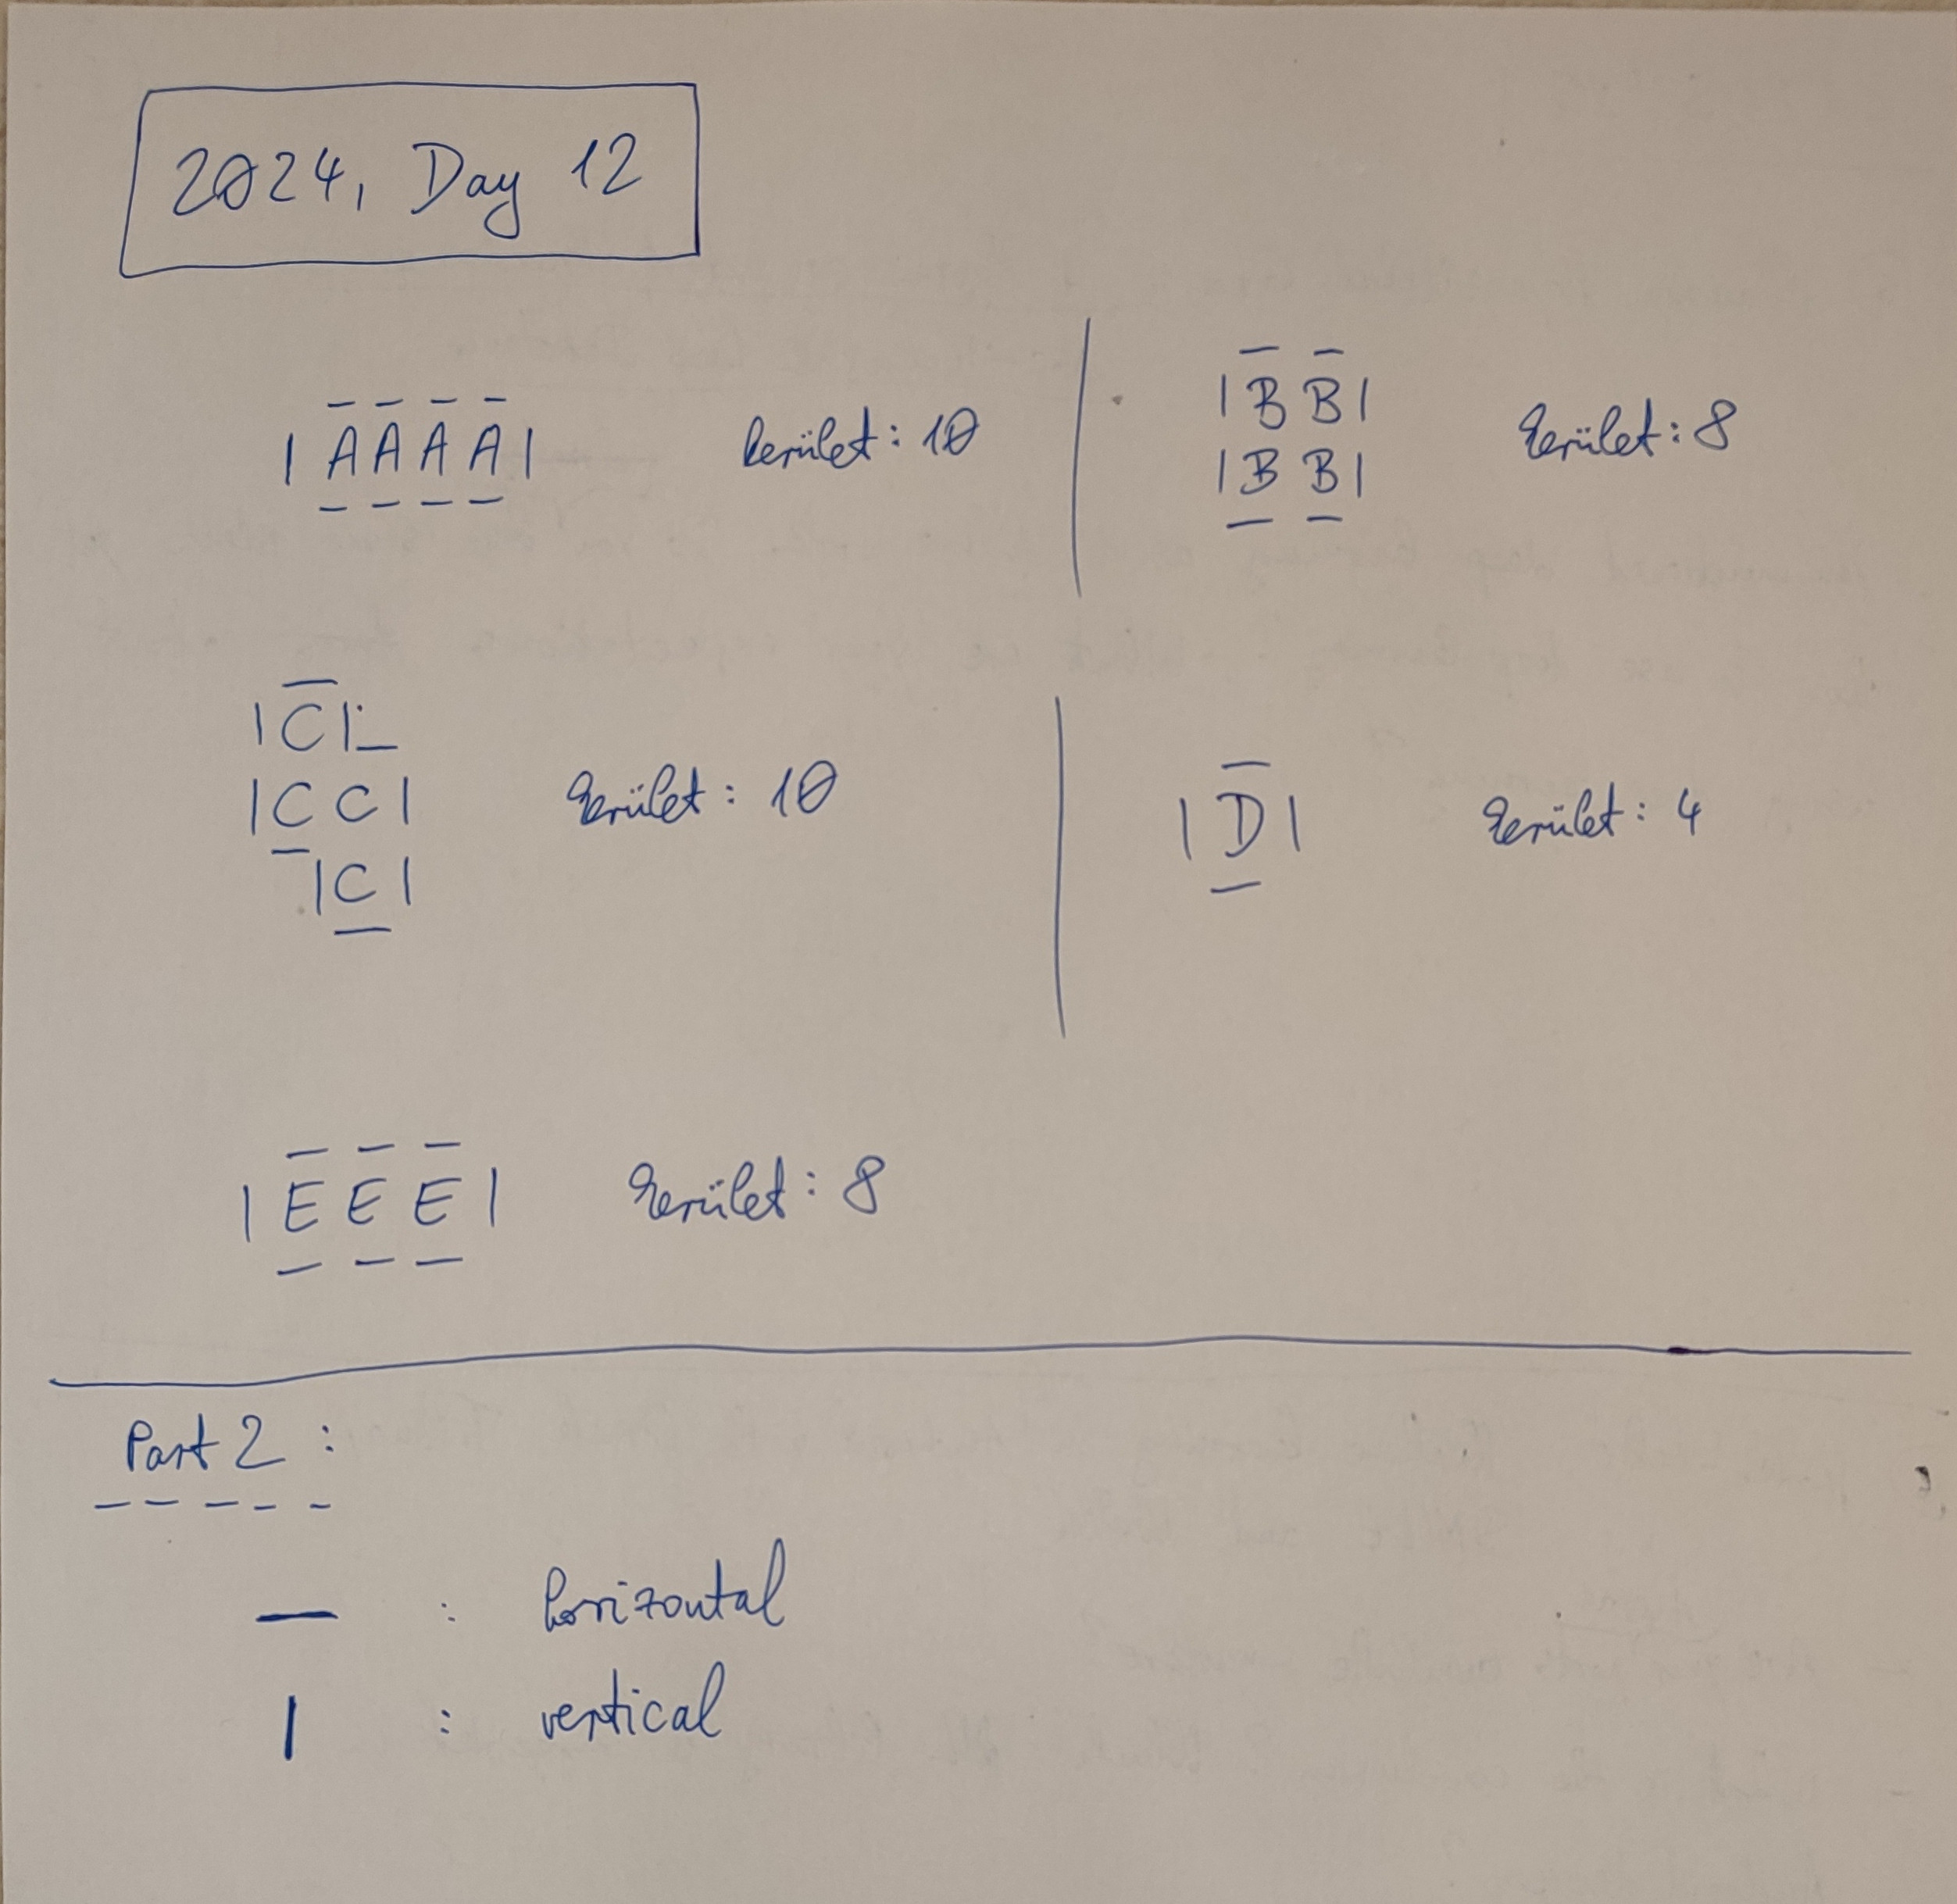 2024, Day 12
| A A A A | kerület: 10
| B B |
| B B | kerület: 8
| C |
| C C | kerület: 10
| C |
| D | kerület: 4
| E E E | kerület: 8
Part 2:
— : horizontal
| : vertical